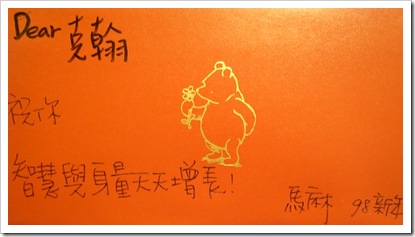 Dear 克翰
祝你
智慧與身量天天增長!
馬麻 98新年